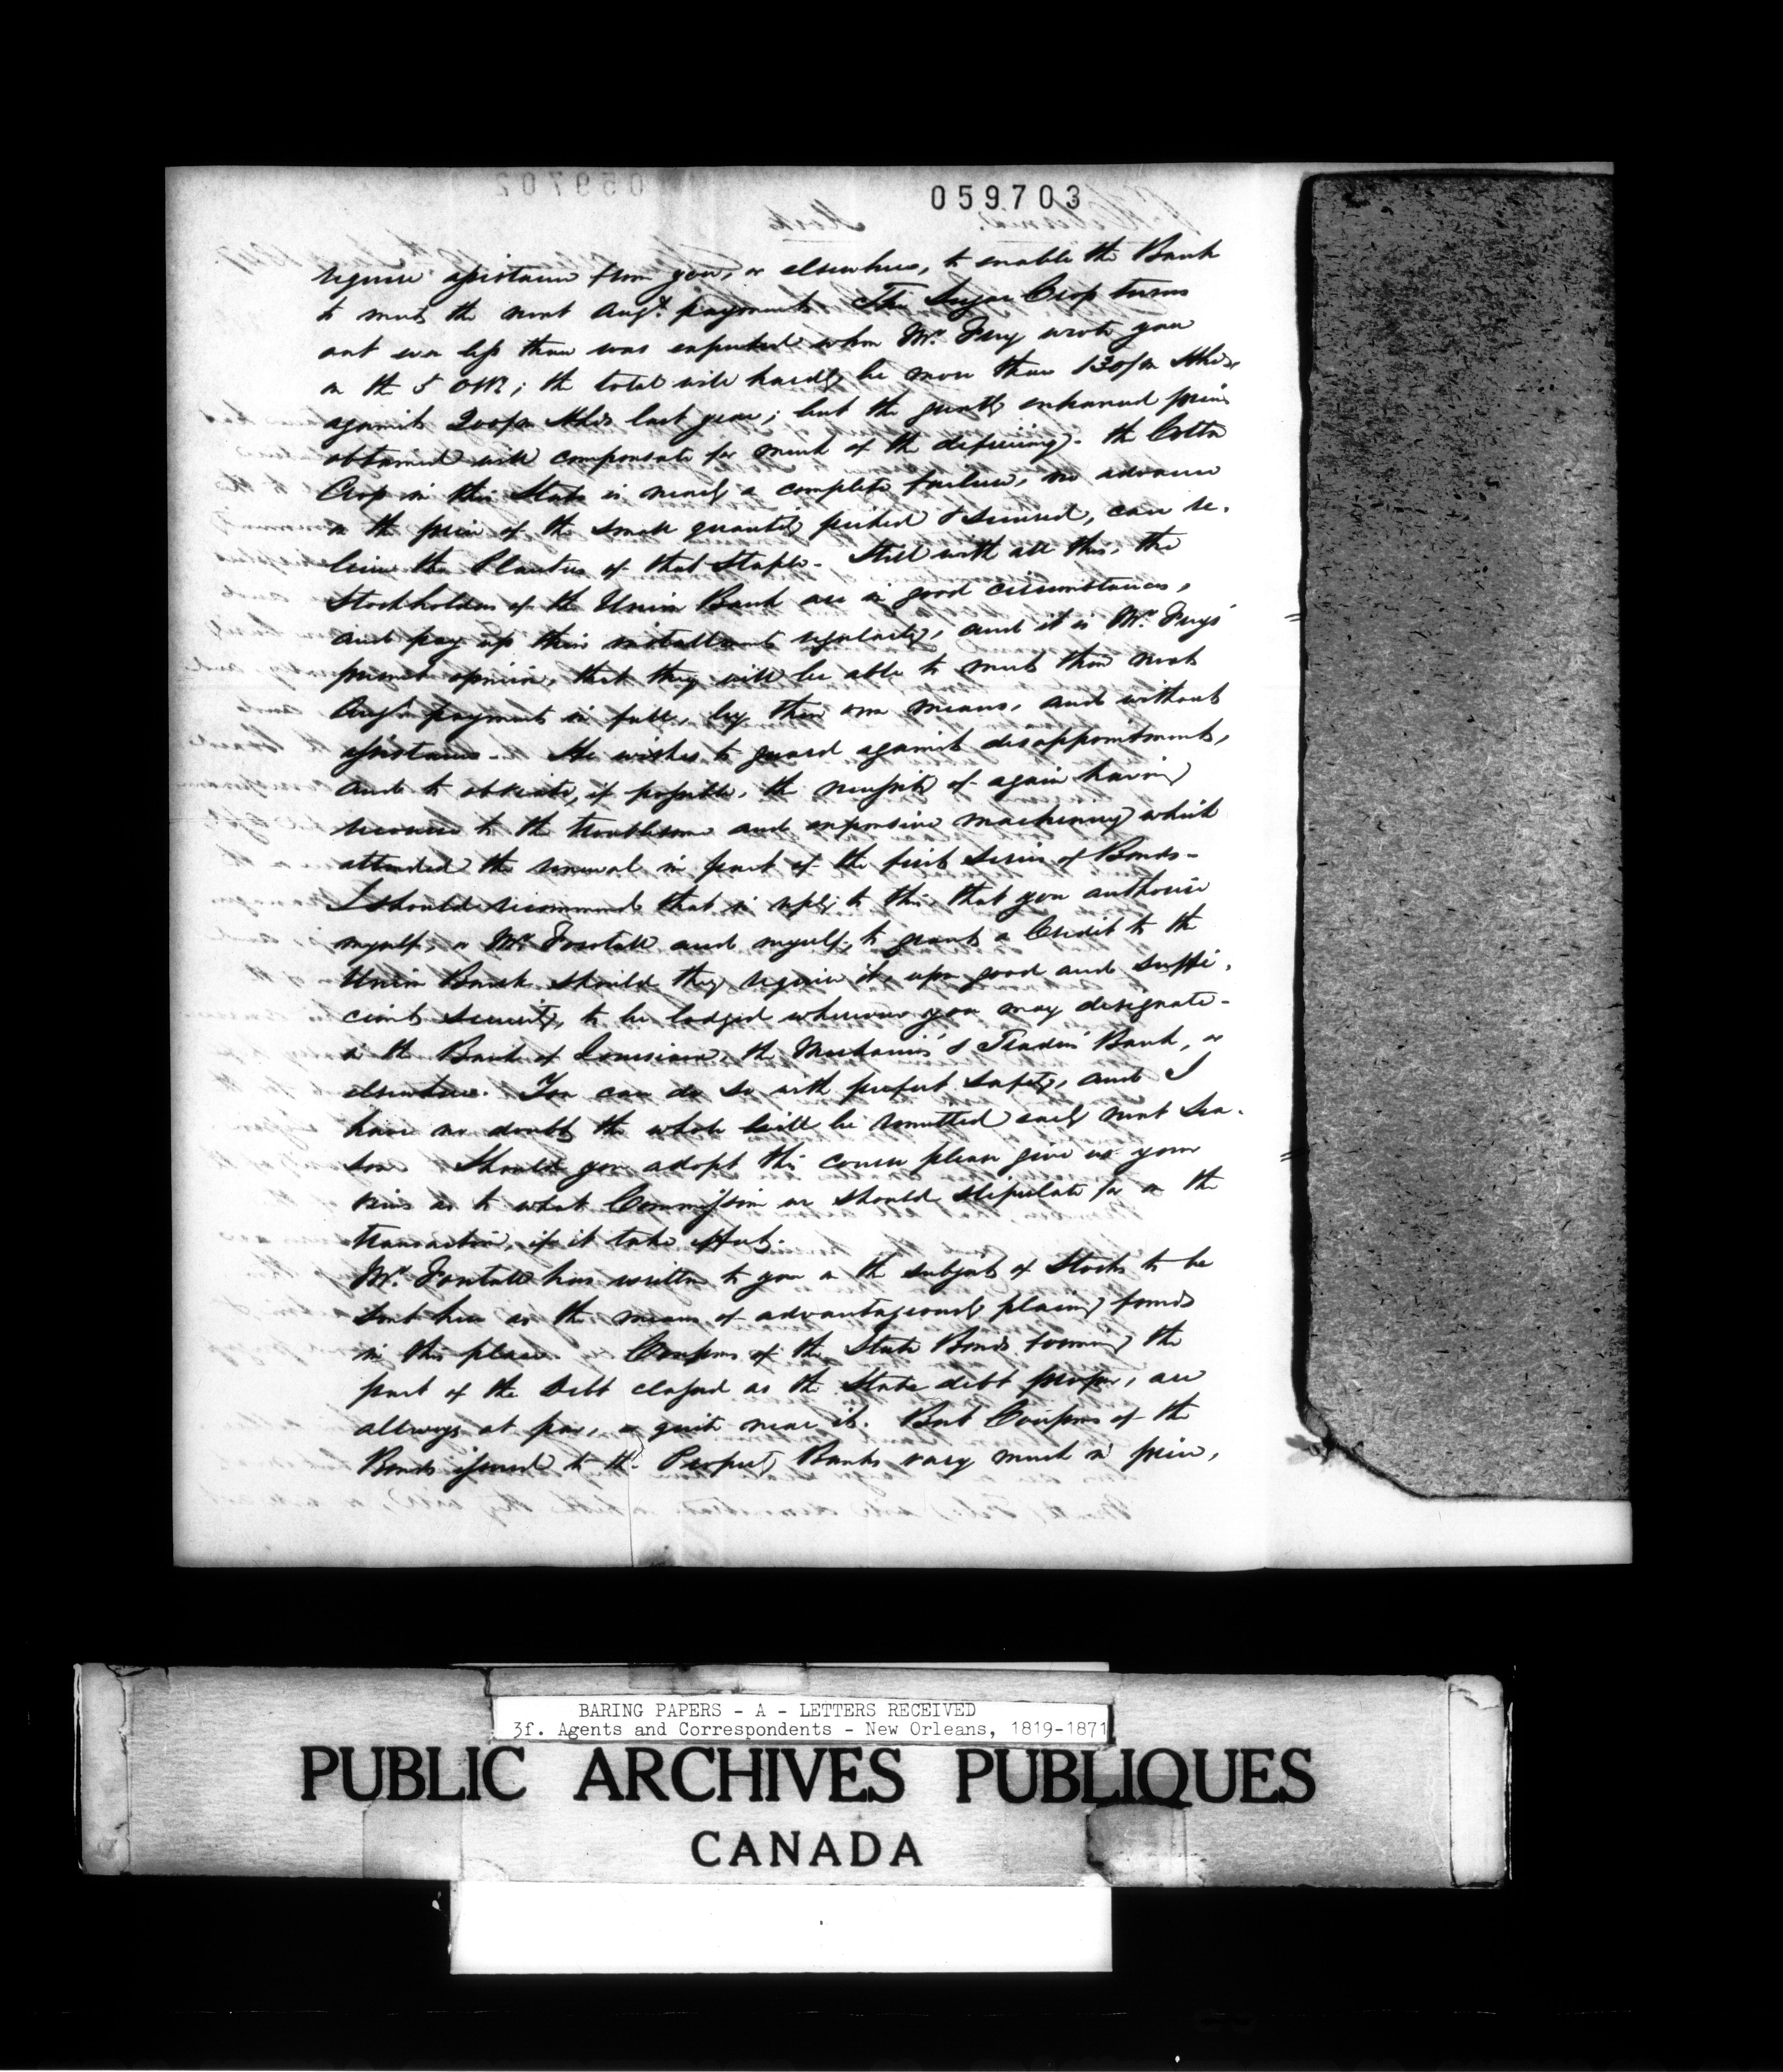 059702
059703
require assistance from you, or elsewhere, to enable the Bank
to meet the next Augt. payment. The Sugar Crop turns
out even less than was expected when Mr. Frey wrote you
on the 5 Octr; the total will hardly be more than 130/m Hhds
against 200/m Hhds last year; but the greatly enhanced price
obtained will compensate for much of the deficiency. The Cotton
Crop in this State is nearly a complete failure, no advance
in the price of the small quantity picked & secured, can re-
lieve the Planters of that Staple. Still with all this, the
Stockholders of the Union Bank are in good circumstances,
and pay up their installments regularly, and it is Mr. Frey's
present opinion, that they will be able to meet their next
Augt. payment in full, by their own means, and without
assistance. He wishes to guard against disappointments,
and to obviate, if possible, the necessity of again having
recourse to the troublesome and expensive machinery which
attended the renewal in part of the first series of Bonds-
I should recommend that in reply to this that you authorise
myself, or Mr. Forstall and myself, to grant a Credit to the
Union Bank should they require it, upon good and suffi-
cient security, to be lodged wherever you may designate-
in the Bank of Louisiana, the Mechanics' & Traders' Bank, or
elsewhere. You can do so with perfect safety, and I
have no doubt the whole will be remitted early next Sea-
son. Should you adopt this course please give us your
views as to what Commission we should stipulate for on the
transaction, if it take effect.
Mr. Forstall has written to you on the subject of Stocks to be
sent here as the means of advantageously placing funds
in this place. Coupons of the State Bonds forming the
part of the Debt classed as the State debt proper, are
allways at par, or quite near it. But Coupons of the
Bonds issued to the Property Banks vary much in price,
BARING PAPERS - A - LETTERS RECEIVED
3f. Agents and Correspondents - New Orleans, 1819-1871
PUBLIC ARCHIVES PUBLIQUES
CANADA